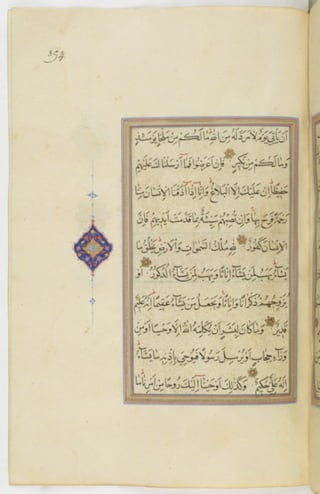 أن يأتي يوم لا مرد له من الله ما لكم من ملجإ يومئذ
وما لكم من نكير فإن أعرضوا فما أرسلناك عليهم
حفيظا إن عليك إلا البلاغ وإنا إذا أذقنا الإنسان منا
رحمة فرح بها وإن تصبهم سيئة بما قدمت أيديهم فإن
الإنسان كفور لله ملك السموات والأرض يخلق ما
يشاء يهب لمن يشاء إناثا ويهب لمن يشاء الذكور أو
يزوجهم ذكرانا وإناثا ويجعل من يشاء عقيما إنه عليم
قدير وما كان لبشر أن يكلمه الله إلا وحيا أو من
وراء حجاب أو يرسل رسولا فيوحي بإذنه ما يشاء
إنه علي حكيم وكذلك أوحينا إليك روحا من أمرنا ما